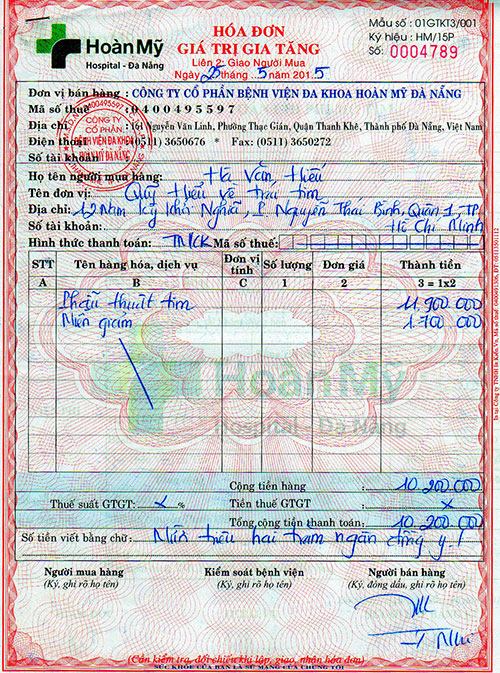 HoànMỹ
Hospital - Đà Nẵng
HÓA ĐƠN
GIÁ TRỊ GIA TĂNG
Liên 2: Giao Người Mua
Ngày 25 tháng 5 năm 2015
Mẫu số : 01GTKT3/001
Ký hiệu : HM/15P
Số: 0004789
Đơn vị bán hàng : CÔNG TY CỔ PHẦN BỆNH VIỆN ĐA KHOA HOÀN MỸ ĐÀ NẴNG
Mã số thuế : 0400495597
Địa chỉ : 161 Nguyễn Văn Linh, Phường Thạc Gián, Quận Thanh Khê, Thành phố Đà Nẵng, Việt Nam
Điện thoại : (0511) 3650676 * Fax: (0511) 3650272
Số tài khoản
Họ tên người mua hàng: Hà Văn Thiếu
Tên đơn vị:
Địa chỉ: 12 Nam Kỳ Khởi Nghĩa, P. Nguyễn Thái Bình, Quận 1, TP.
Số tài khoản: Hồ Chí Minh
Hình thức thanh toán: TM/CK Mã số thuế:
STT Tên hàng hóa, dịch vụ Đơn vị tính Số lượng Đơn giá Thành tiền
A B C 1 2 3 = 1x2
Phẫu thuật tim 11.900.000
Miễn giảm 1.700.000
HoànMỹ
Hospital - Đà Nẵng
Cộng tiền hàng : 10.200.000
Thuế suất GTGT: x % Tiền thuế GTGT : x
Tổng cộng tiền thanh toán: 10.200.000
Số tiền viết bằng chữ: Mười triệu hai trăm ngàn đồng y!
Người mua hàng Kiểm soát bệnh viện Người bán hàng
(Ký, ghi rõ họ tên) (Ký, ghi rõ họ tên) (Ký, đóng dấu, ghi rõ họ tên)
(Cần kiểm tra, đối chiếu khi lập, giao, nhận hóa đơn)
SỨC KHỎE CỦA BẠN LÀ SỨ MẠNG CỦA CHÚNG TÔI